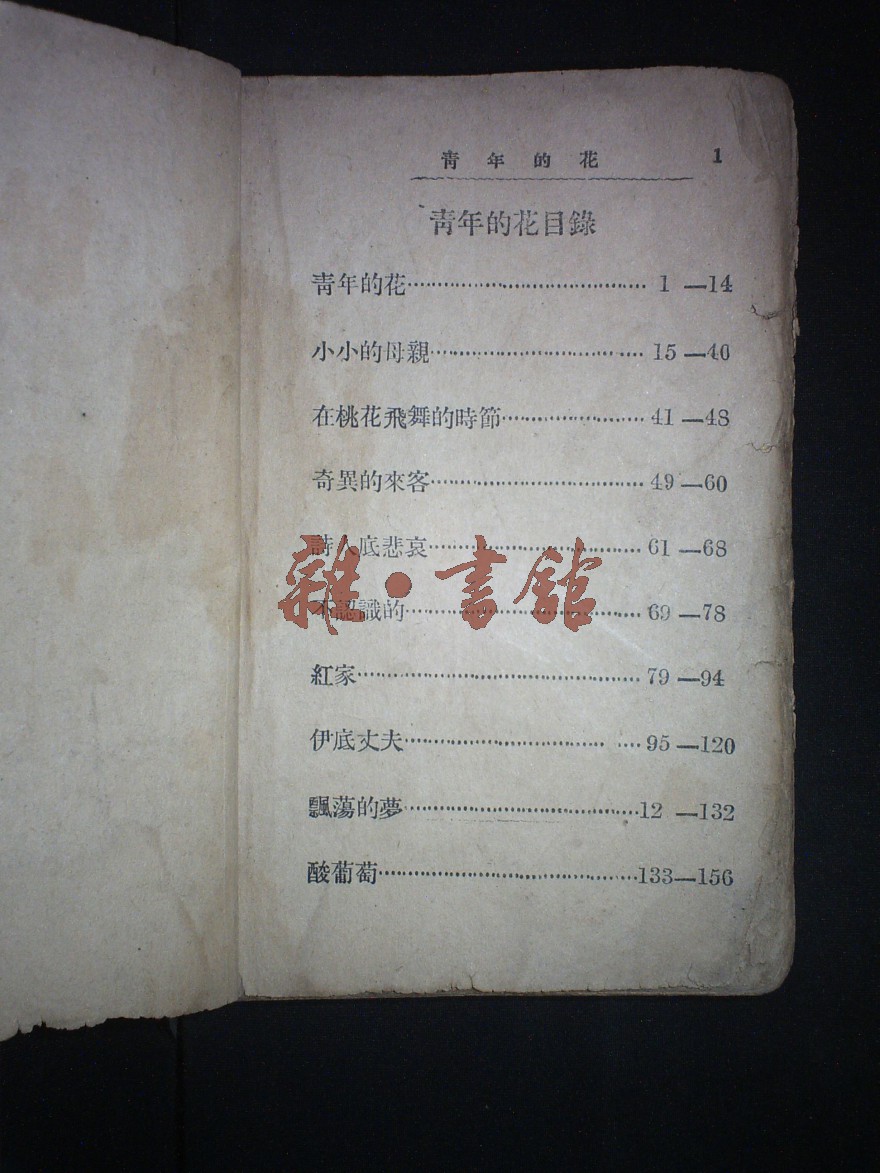 青年的花 1
青年的花目錄
青年的花 1—14
小小的母親 15—40
在桃花飛舞的時節 41—48
奇異的來客 49—60
詩人底悲哀 61—68
雜·書館
不認識的 69—78
紅家 79—94
伊底丈夫 95—120
飄蕩的夢 12 —132
酸葡萄 133—156